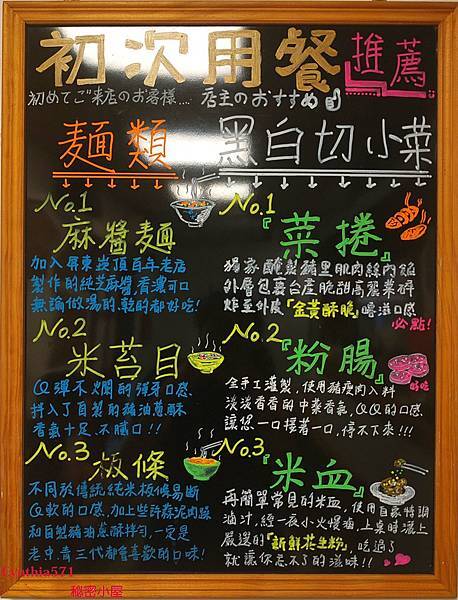 初次用餐
推薦
初めてご来店のお客様....店主のおすすめ
麵類
No.1
麻醬麵
加入屏東崁頂百年老店
製作的純芝麻醬,香濃可口
無論做湯的、乾的都好吃!
No.2
米苔目
QQ彈不爛的彈牙口感
拌入了自製的豬油蔥酥
香氣十足、不膩口!!
No.3
板條
不同於傳統純米板條易斷
QQ軟的口感,加上些許蒜泥肉燥
和自製豬油蔥酥拌勻,一定是
老中青三代都會喜歡的口味!
黑白切小菜
No.1
『菜捲』
獨家醃製豬里肌肉絲內餡
外層包裹台產脆甜高麗菜碎
炸至外皮「金黃酥脆」噴滋口感
必點!
No.2
『粉腸』
全手工灌製,使用豬瘦肉入料
淡淡香香的中藥香氣,QQ的口感
讓您一口接著一口,停不下來!!!
No.3
『米血』
再簡單常見的米血,使用自家特調
滷汁,經一夜小火慢滷,上桌時灑上
嚴選的「新鮮花生粉」,吃過了
就讓你忘不了的滋味!!
Cynthia571
秘密小屋